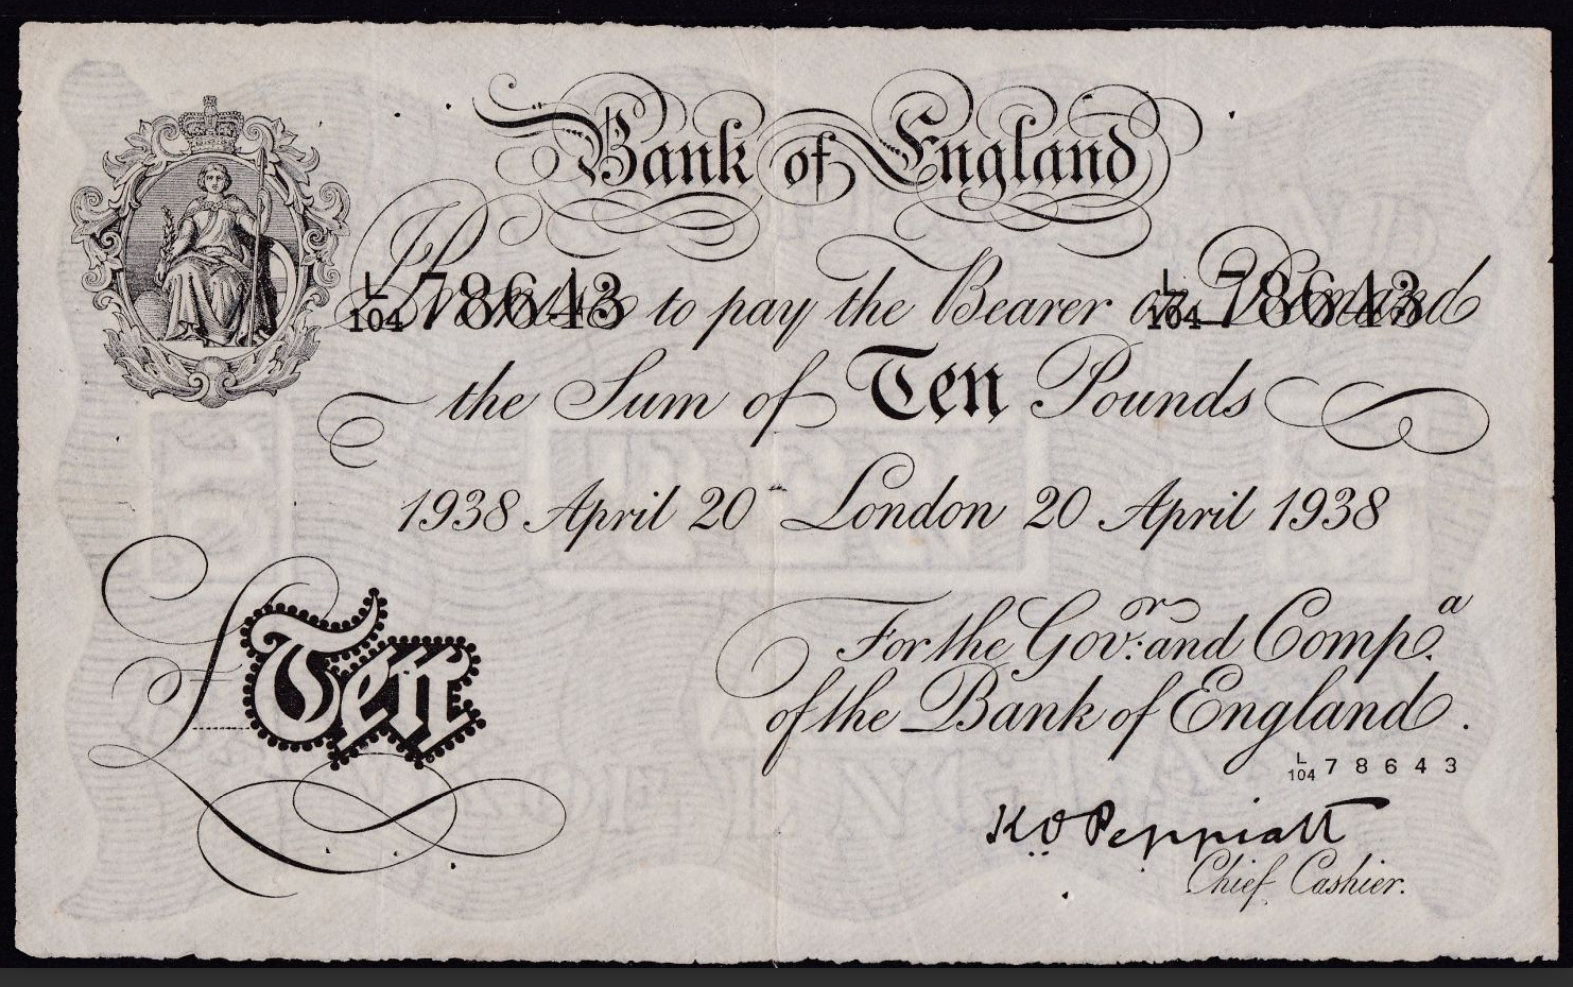 Bank of England
I Promise to pay the Bearer on Demand
L/104 78643 L/104 78643
the Sum of Ten Pounds
1938 April 20 London 20 April 1938
For the Govr. and Compa.
£ Ten
of the Bank of England.
L/104 78643
K O Peppiatt
Chief Cashier.